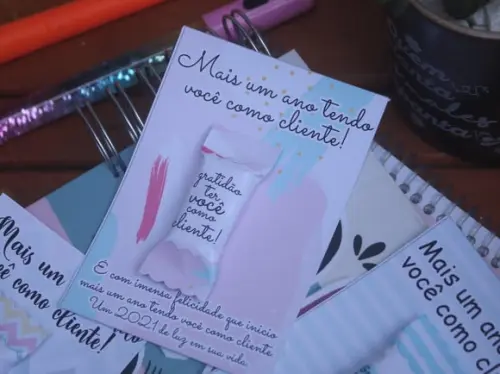 Mais um ano tendo
você como cliente!
gratidão
ter
você
como
cliente!
É com imensa felicidade que inicio
mais um ano tendo você como cliente
Um 2021 de luz em sua vida.
Mais um
você como cliente!
Mais um ano
você como cl